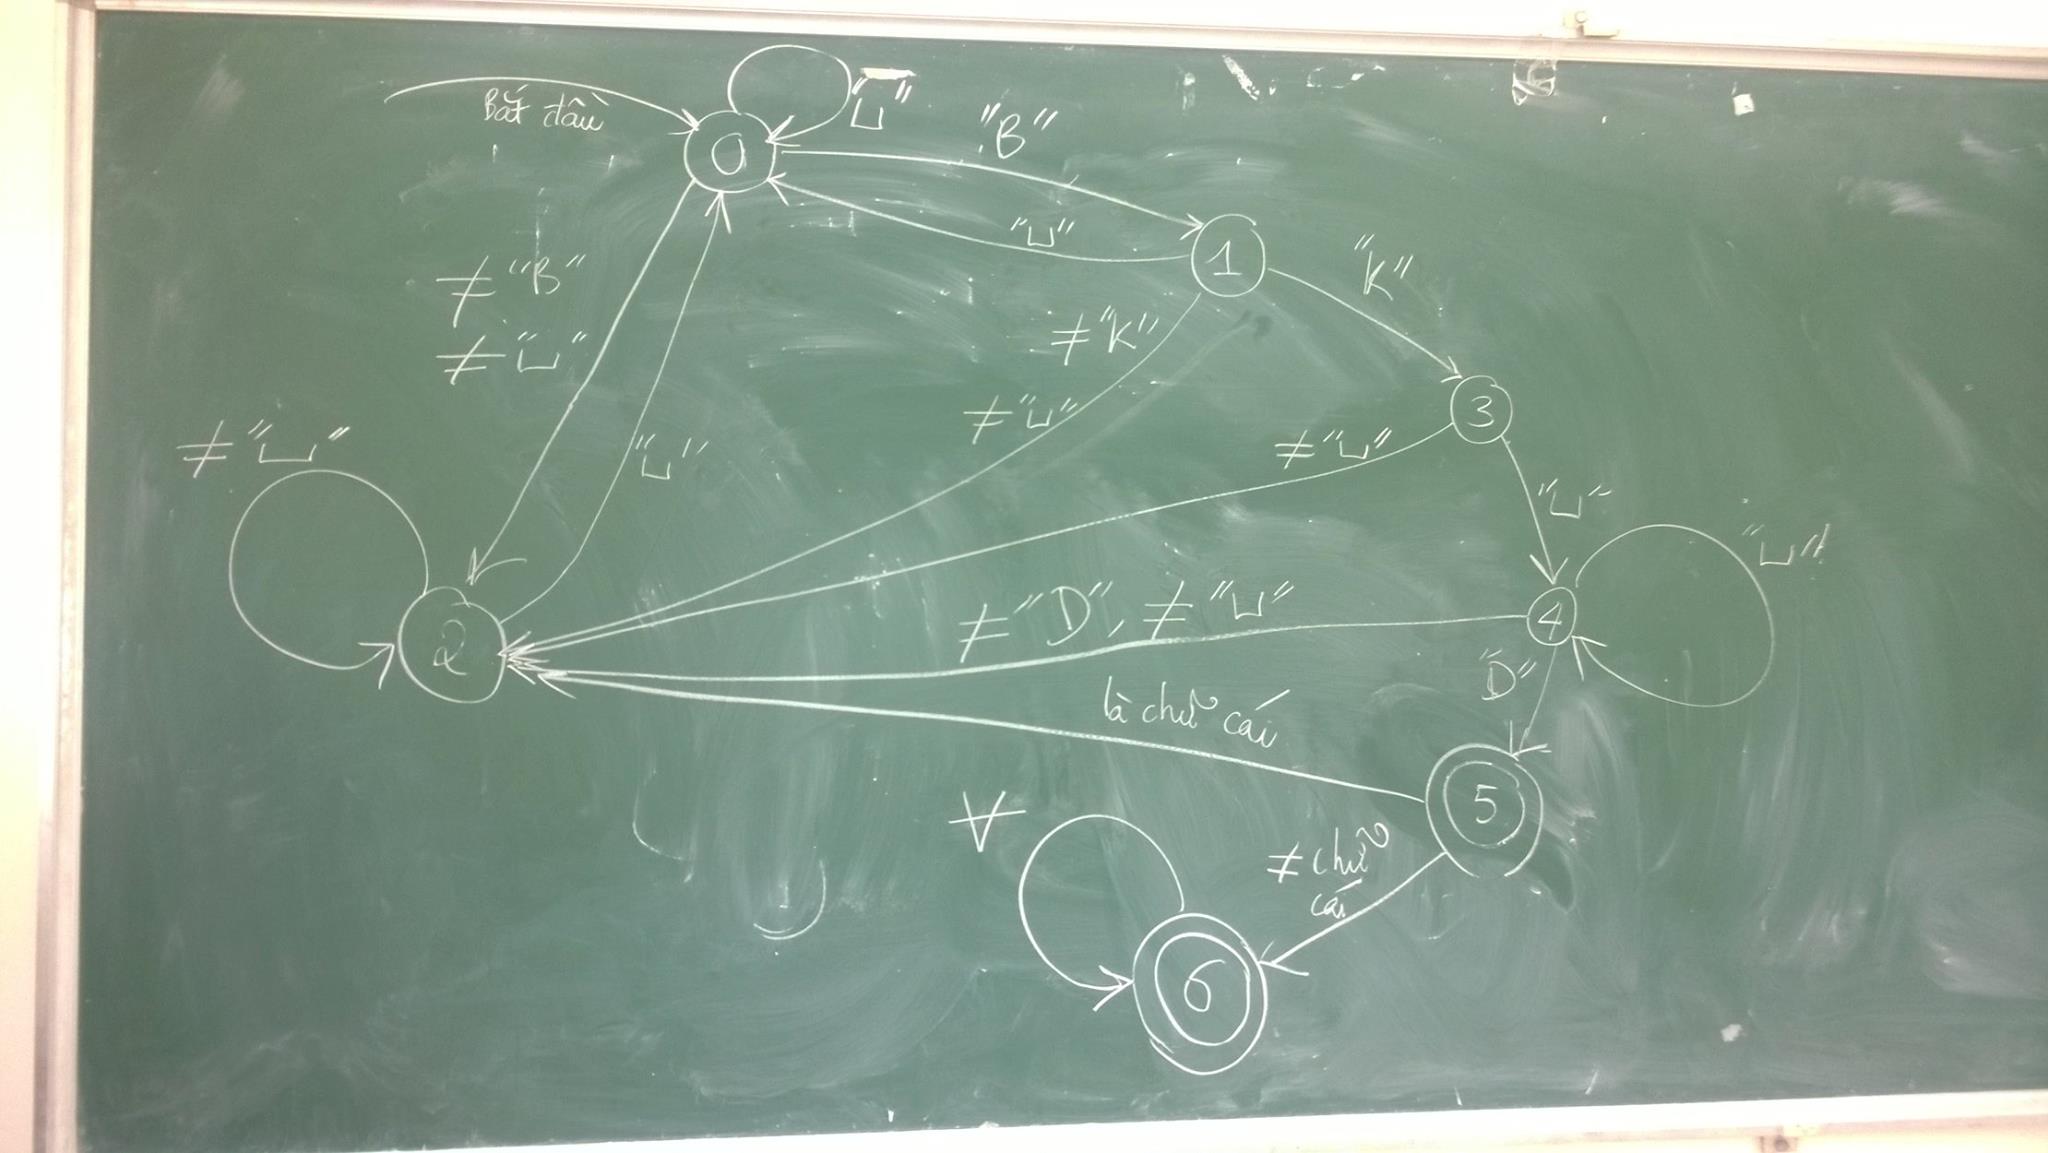 Bắt đầu
"⊔"
0
"B"
"⊔"
1
"K"
≠ "B"
≠ "⊔"
≠ "K"
≠ "⊔"
"⊔"
3
≠ "⊔"
≠ "⊔"
"⊔"
"⊔"
2
≠ "D", ≠ "⊔"
4
"D"
là chữ cái
5
∀
≠ chữ
cái
6